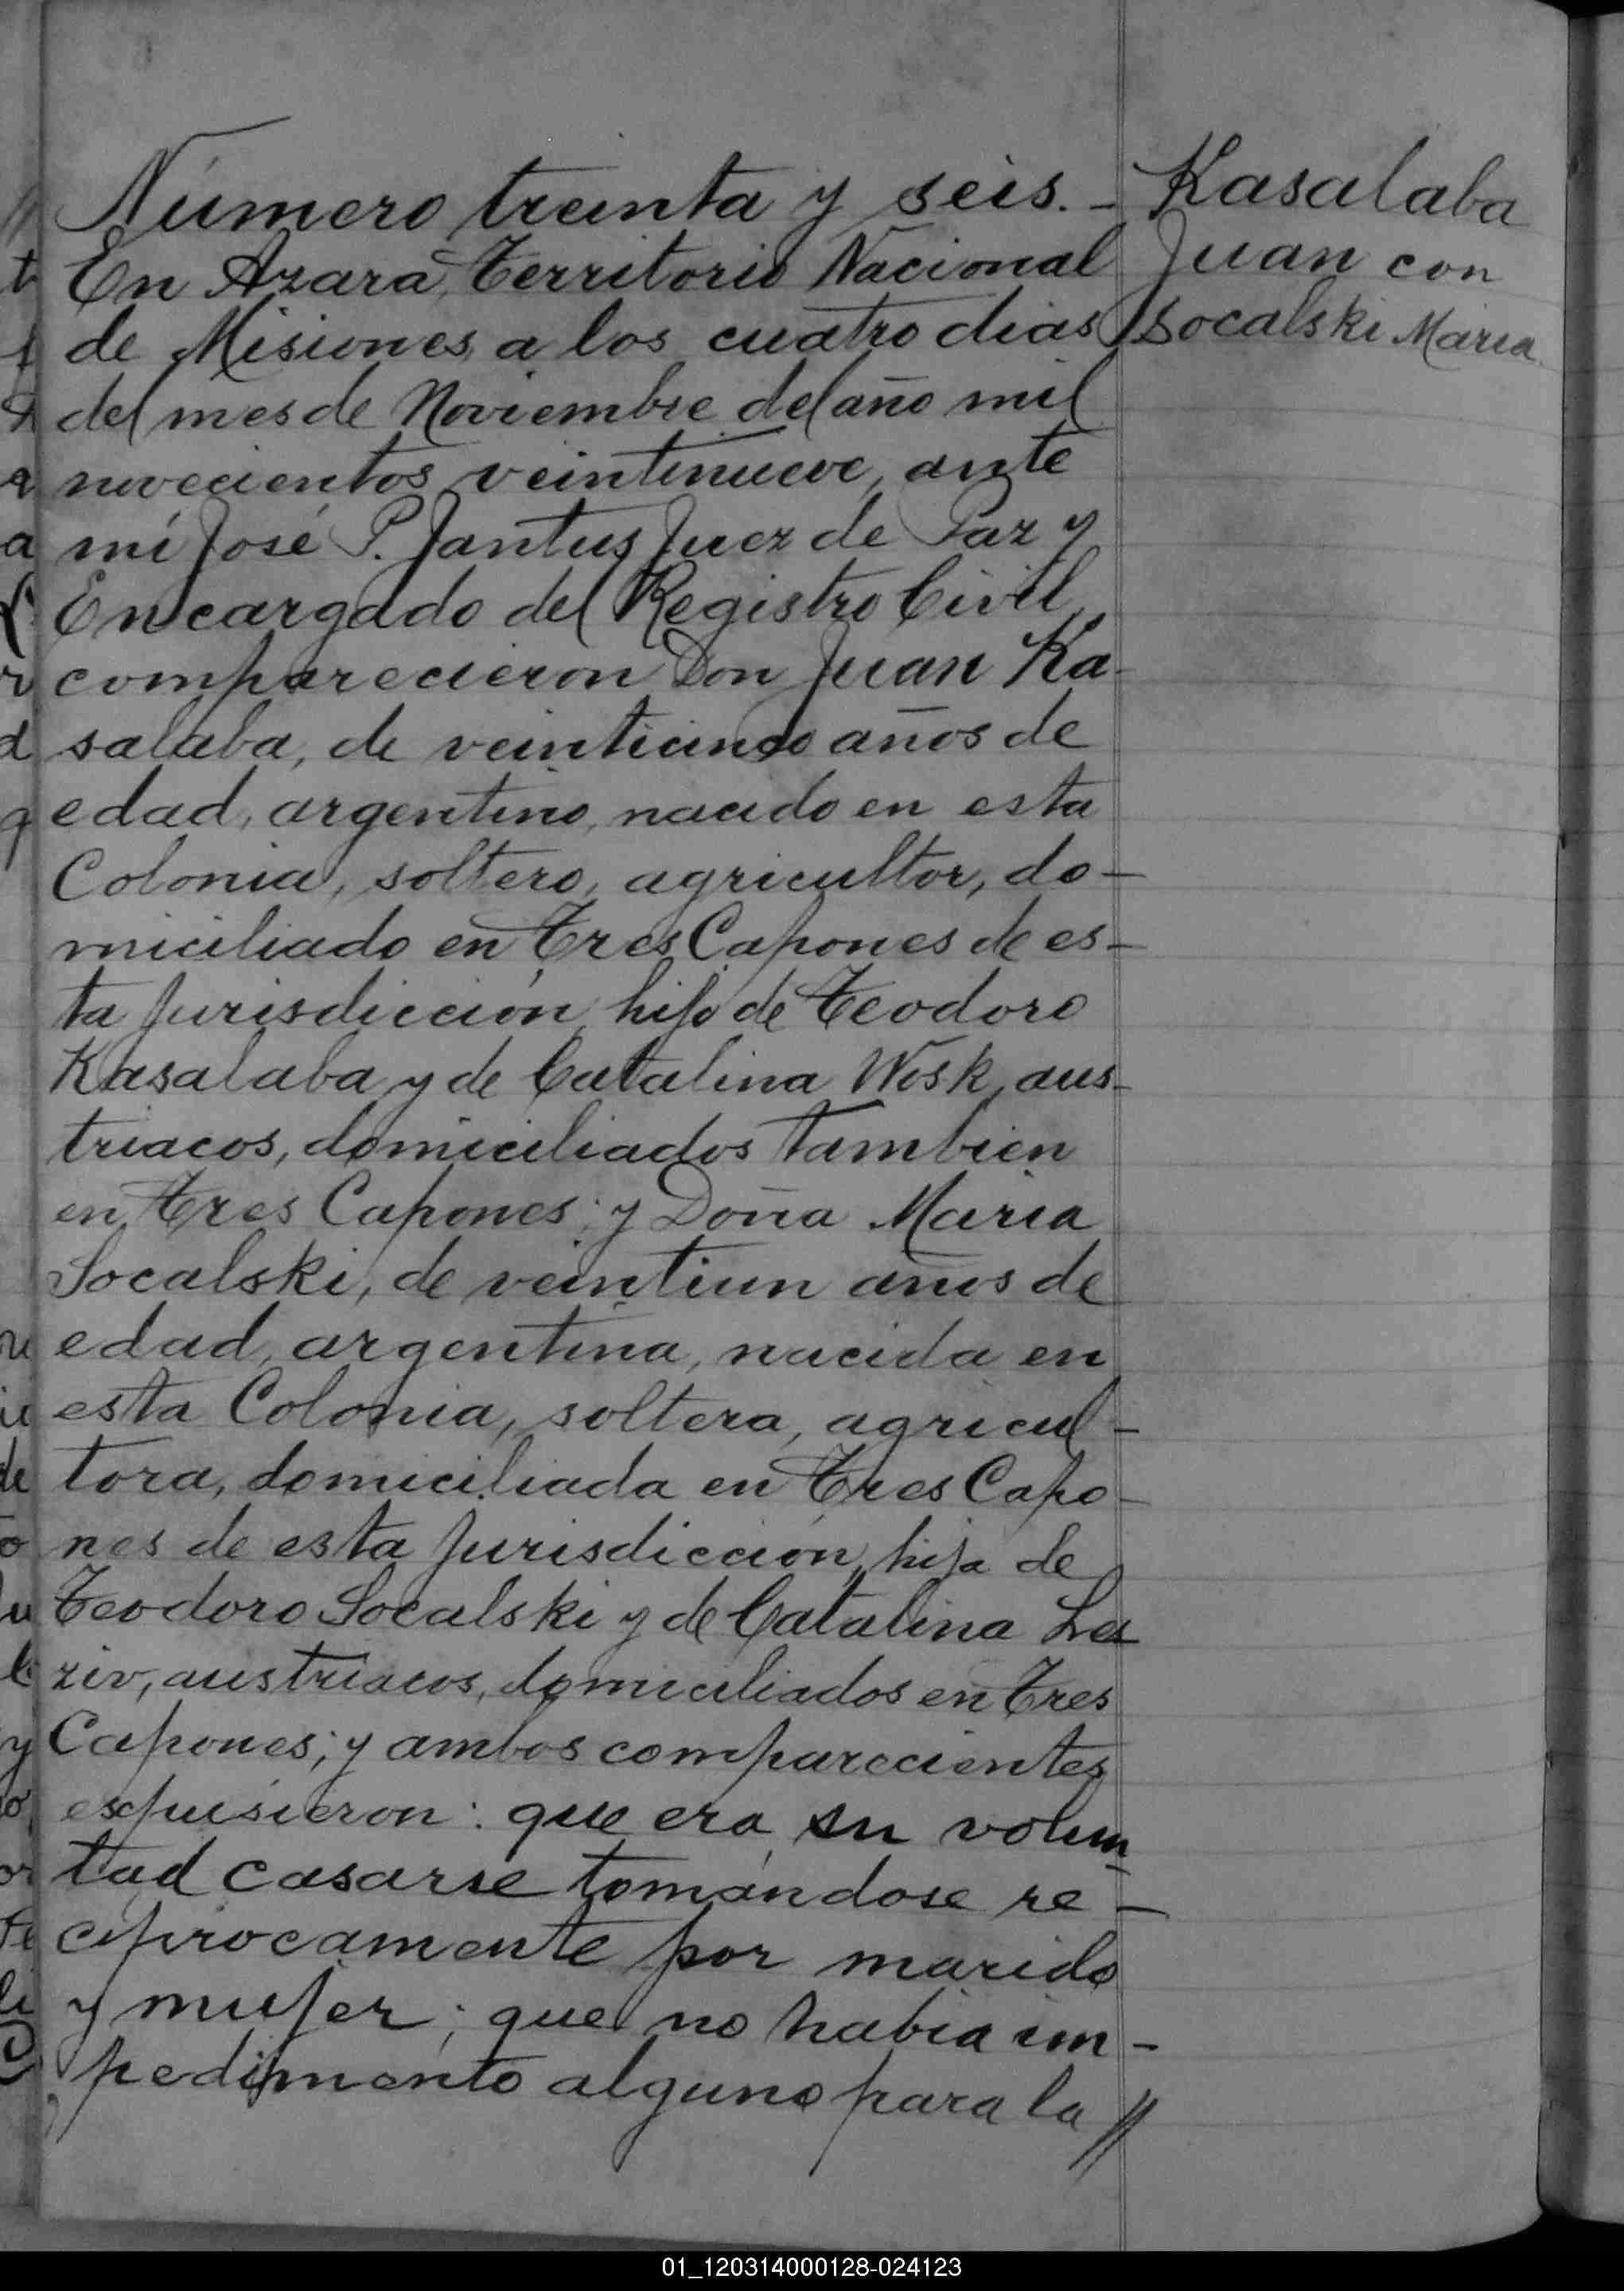 Número treinta y seis. -
En Azara, Territorio Nacional
de Misiones, a los cuatro dias
del mes de Noviembre del año mil
novecientos veintinueve, ante
mí José P. Jantus Juez de Paz y
Encargado del Registro Civil,
comparecieron Don Juan Ka-
salaba, de veinticinco años de
edad, argentino, nacido en esta
Colonia, soltero, agricultor, do-
miciliado en Tres Capones de es-
ta jurisdicción, hijo de Teodoro
Kasalaba y de Catalina Wosk, aus-
triacos, domiciliados tambien
en Tres Capones; y Doña Maria
Socalski, de veintiun años de
edad, argentina, nacida en
esta Colonia, soltera, agricul-
tora, domiciliada en Tres Capo-
nes de esta jurisdicción, hija de
Teodoro Socalski y de Catalina La
ziv, austriacos, domiciliados en Tres
Capones; y ambos comparecientes
expusieron: que era su volun-
tad casarse tomándose re-
ciprocamente por marido
y mujer; que no habia im-
pedimento alguno para la //
Kasalaba
Juan con
Socalski Maria
01_120314000128-024123